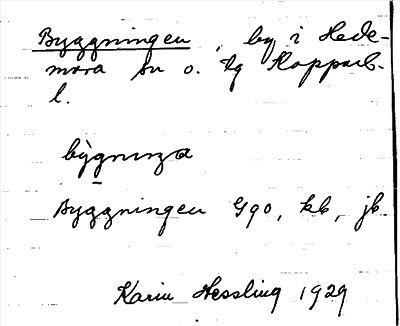 Byggningen, by i Hede-
mora sn o. tg Kopparb.
l.
bỳgnuṉa
Byggningen Ggo, kb, jb.
Karin Hessling 1929